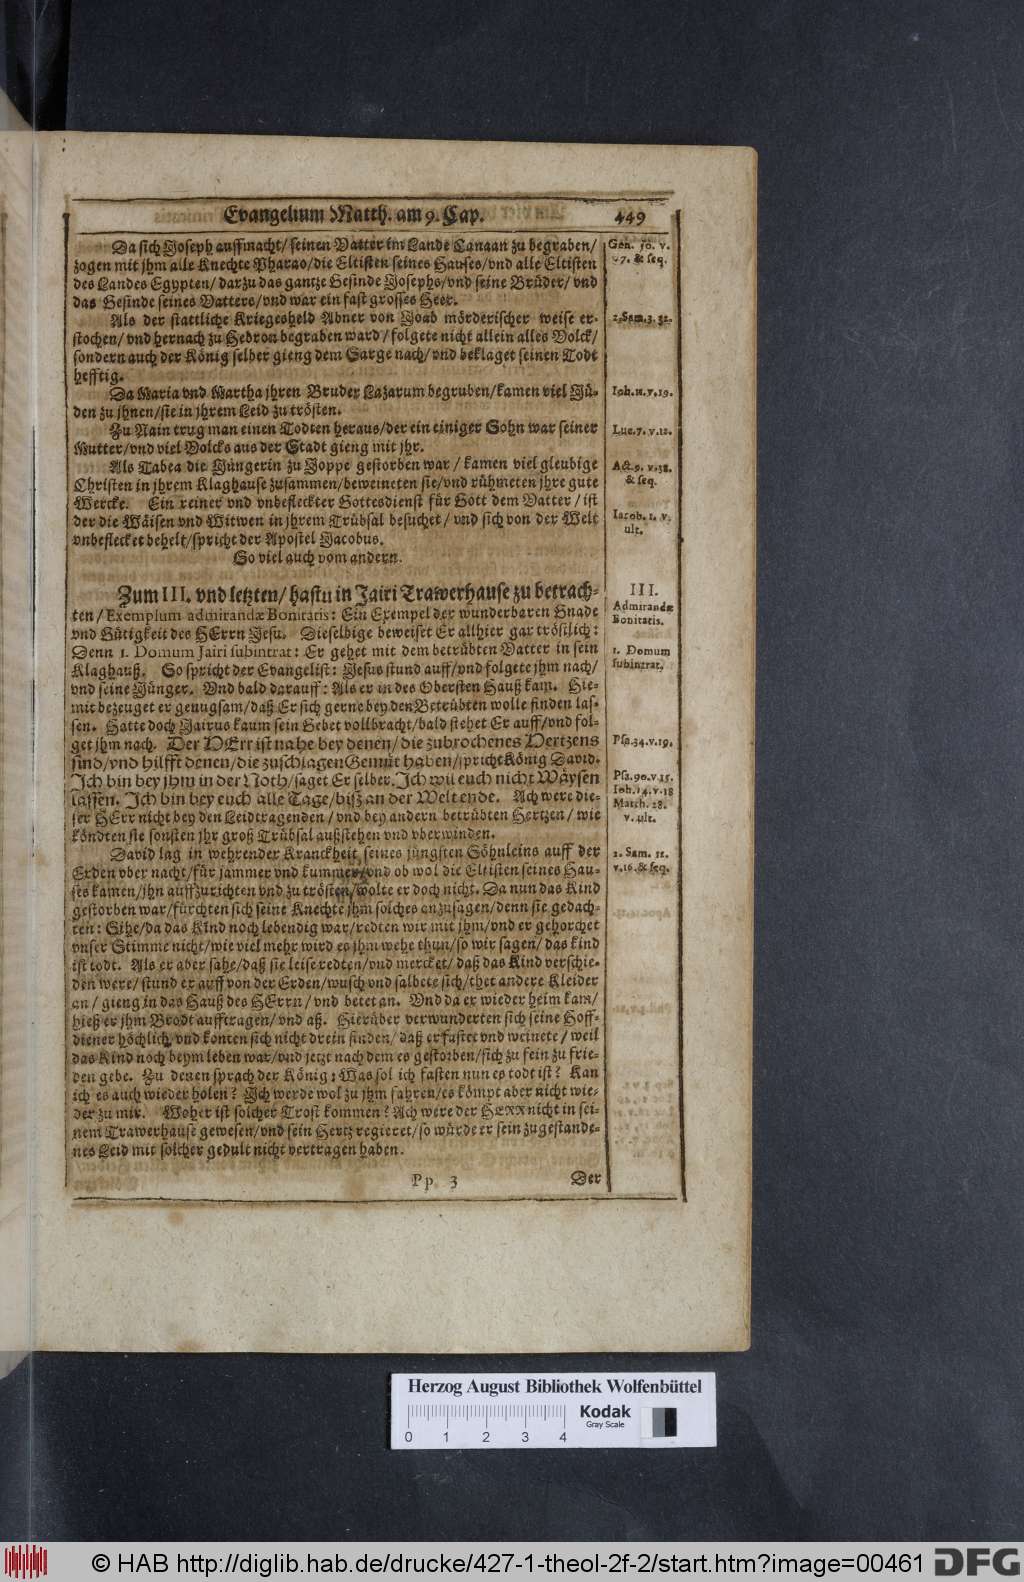 Evangelium Matth. am 9. Cap. 449
Da sich Joseph auffmacht/ seinen Vatter im Lande Canaan zu begraben/
zogen mit jhm alle Knechte Pharao/die Eltisten seines Hauses/vnd alle Eltisten
des Landes Egypten/ darzu das gantze Gesinde Josephs/vnd seine Brüder/ vnd
das Gesinde seines Vatters/vnd war ein fast grosses Heer.
Als der stattliche Kriegesheld Abner von Joab mörderischer weise er-
stochen/ vnd hernach zu Hebron begraben ward/ folgete nicht allein alles Volck/
sondern auch der König selber gieng dem Sarge nach/ vnd beklaget seinen Todt
hefftig.
Da Maria vnd Martha jhren Bruder Lazarum begruben/kamen viel Jü-
den zu jhnen/sie in jhrem Leid zu trösten.
Zu Nain trug man einen Todten heraus/der ein einiger Sohn war seiner
Mutter/vnd viel Volcks aus der Stadt gieng mit jhr.
Als Tabea die Jüngerin zu Joppe gestorben war / kamen viel gleubige
Christen in jhrem Klaghause zusammen/beweineten sie/vnd rühmeten jhre gute
Wercke. Ein reiner vnd vnbefleckter Gottesdienst für Gott dem Vatter / ist
der die Wäisen vnd Witwen in jhrem Trübsal besuchet / vnd sich von der Welt
vnbeflecket behelt/spricht der Apostel Jacobus.
So viel auch vom andern.
Zum III. vnd letzten/ hastu in Jairi Trawerhause zu betrach-
ten/Exemplum admirandæ Bonitatis: Ein Exempel der wunderbaren Gnade
vnd Gütigkeit des HErrn Jesu. Dieselbige beweiset Er allhier gar tröstlich:
Denn 1. Domum Jairi subintrat: Er gehet mit dem betrübten Vatter in sein
Klaghauß. So spricht der Evangelist: Jesus stund auff/vnd folgete jhm nach/
vnd seine Jünger. Vnd bald darauff: Als er in des Obersten Hauß kam. Hie-
mit bezeuget er genugsam/daß Er sich gerne bey den Betrübten wolle finden las-
sen. Hatte doch Jairus kaum sein Gebet vollbracht/bald stehet Er auff/vnd fol-
get jhm nach. Der HErr ist nahe bey denen/die zubrochenes Hertzens
sind/vnd hilfft denen/die zuschlagen Gemüt haben/spricht König David.
Ich bin bey jhm in der Noth/saget Er selber. Ich wil euch nicht Wäysen
lassen. Ich bin bey euch alle Tage/biß an der Welt ende. Ach were die-
ser HErr nicht bey den Leidtragenden / vnd bey andern betrübten Hertzen/ wie
köndten sie sonsten jhr groß Trübsal außstehen vnd vberwinden.
David lag in wehrender Kranckheit seines jüngsten Söhnleins auff der
Erden vber nacht/für jammer vnd kummer/vnd ob wol die Eltisten seines Hau-
ses kamen/jhn auffzurichten vnd zu trösten/wolte er doch nicht. Da nun das Kind
gestorben war/fürchten sich seine Knechte jhm solches anzusagen/denn sie gedach-
ten: Sihe/da das Kind noch lebendig war/redten wir mit jhm/vnd er gehorchet
vnser Stimme nicht/wie viel mehr wird es jhm wehe thun/so wir sagen/ das kind
ist todt. Als er aber sahe/daß sie leise redten/vnd mercket/ daß das Kind verschie-
den were/ stund er auff von der Erden/wusch vnd salbete sich/thet andere Kleider
an/ gieng in das Hauß des HErrn/ vnd betet an. Vnd da er wieder heim kam/
hieß er jhm Brodt aufftragen/ vnd aß. Hierüber verwunderten sich seine Hoff-
diener höchlich/vnd konten sich nicht drein finden/ daß er fastet vnd weinete/ weil
das Kind noch beym leben war/vnd jetzt nach dem es gestorben/sich zu fein zu frie-
den gebe. Zu denen sprach der König: Was sol ich fasten nun es todt ist? Kan
ich es auch wieder holen? Ich werde wol zu jhm fahren/es kömpt aber nicht wie-
der zu mir. Woher ist solcher Trost kommen? Ach were der HERR nicht in sei-
nem Trawerhause gewesen/vnd sein Hertz regieret/so würde er sein zugestande-
nes Leid mit solcher gedult nicht vertragen haben.
Pp 3 Der
Gen. 50. v.
7. & seq.
2. Sam. 3. 32.
Ioh. 11. v. 19.
Luc. 7. v. 12.
Act. 9. v. 38.
& seq.
Iacob. 1. v.
ult.
III.
Admirandæ
Bonitatis.
1. Domum
subintrat.
Psa. 34. v. 19.
Psa. 90. v. 15.
Ioh. 14. v. 18
Matth. 28.
v. ult.
2. Sam. 12.
v. 16. & seq.
Herzog August Bibliothek Wolfenbüttel
0 1 2 3 4
Kodak
Gray Scale
© HAB http://diglib.hab.de/drucke/427-1-theol-2f-2/start.htm?image=00461
DFG